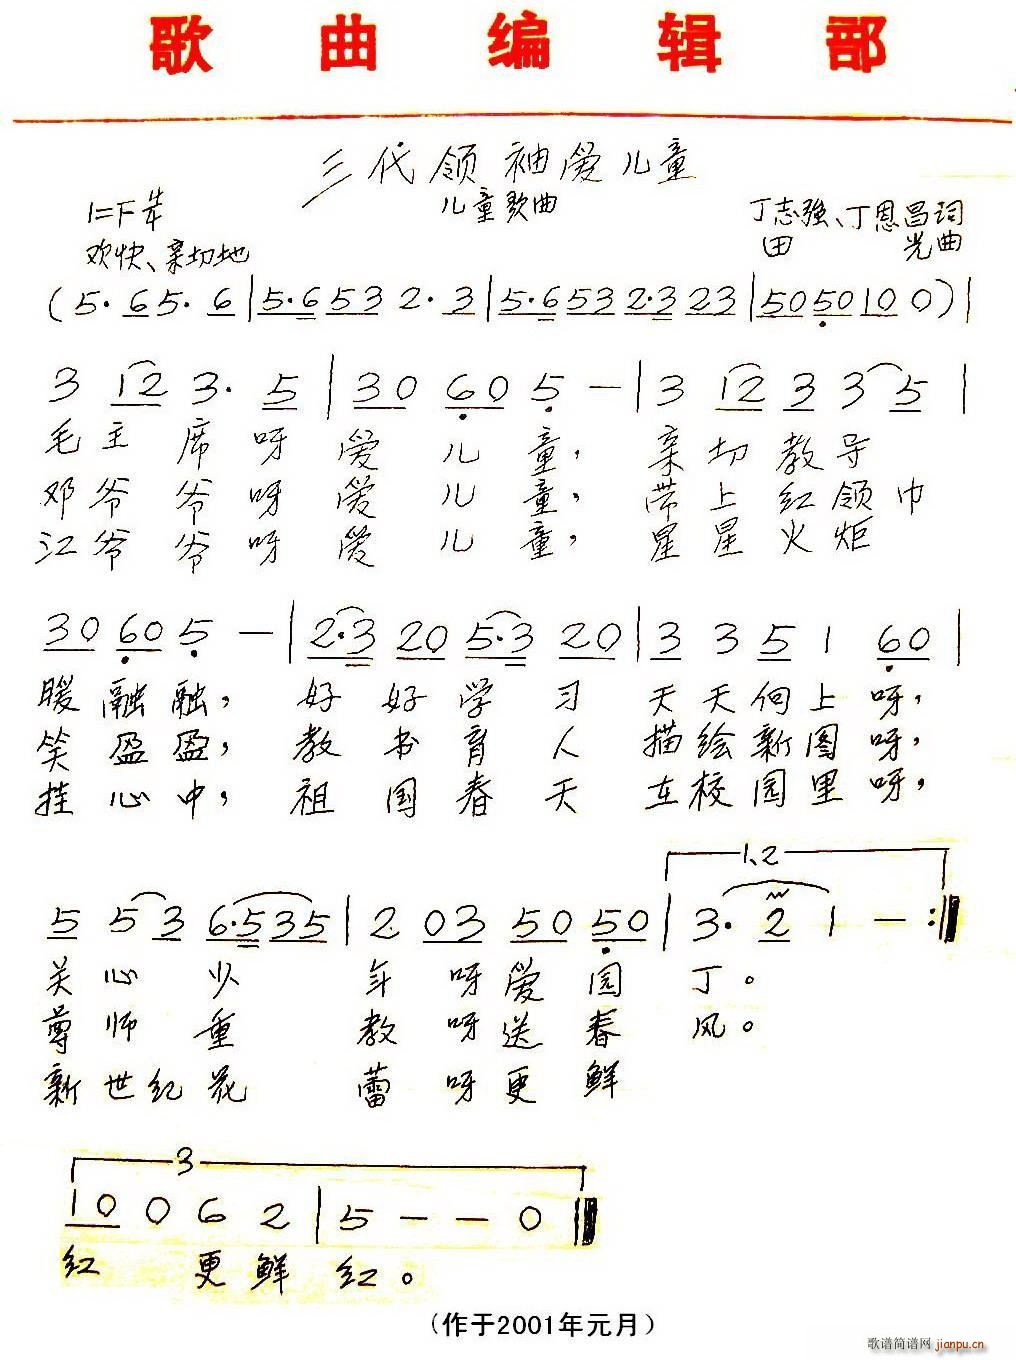 歌曲编辑部
三代领袖爱儿童
儿童歌曲
1=F 4/4
丁志强、丁恩昌词
欢快、亲切地
田 光曲
(5·6 5·6 | 5·6 5 3 2·3 | 5·6 5 3 2·3 2 3 | 5 0 5 0 1 0 0) |
3 1 2 3· 5 | 3 0 6 0 5 — | 3 1 2 3 3 5 |
毛主席呀爱儿童，亲切教导
邓爷爷呀爱儿童，带上红领巾
江爷爷呀爱儿童，星星火炬
3 0 6 0 5 — | 2·3 2 0 5·3 2 0 | 3 3 5 1 6 0 |
暖融融，好好学习天天向上呀，
笑盈盈，教书育人描绘新图呀，
挂心中，祖国春天在校园里呀，
1、2
5 5 3 6·5 3 5 | 2 0 3 5 0 5 0 | 3· 2 1 — :||
关心少年呀爱园丁。
尊师重教呀送春风。
新世纪花蕾呀更鲜
3
1 0 0 6 2 | 5 — — 0 ||
红 更鲜红。
（作于2001年元月）
歌谱简谱网 jianpu.cn